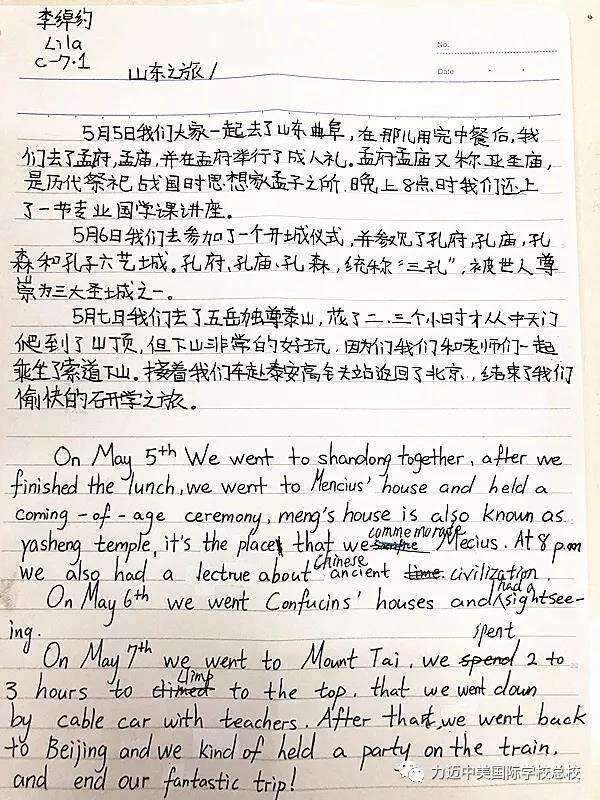 李绰约
Lila
C-7.1
No.
Date
山东之旅
5月5日我们大家一起去了山东曲阜,在那儿用完中餐后,我
们去了孟府,孟庙,并在孟府举行了成人礼。孟府孟庙又称亚圣庙,
是历代祭祀战国时思想家孟子之所.晚上8点时我们还上
了一节专业国学课讲座。
5月6日我们去参加了一个开城仪式,并参观了孔府,孔庙,孔
森和孔子六艺城。孔府、孔庙、孔森,统称“三孔”,被世人尊
崇为三大圣城之一。
5月七日我们去了五岳独尊泰山,花了二、三个小时才从中天门
爬到了山顶,但下山非常的好玩,因为们我们和老师们一起
乘坐了索道下山。接着我们车赴泰安高铁站返回了北京,结束了我们
愉快的研学之旅。
On May 5th We went to shandong together, after we
finished the lunch, we went to Mencius' house and held a
coming-of-age ceremony, meng's house is also known as
yasheng temple, it's the place that we commemorate Mecius. At 8 p.m
we also had a lectrue about Chinese ancient civilization.
On May 6th we went Confucins' houses and had a sightsee-
ing.
On May 7th we went to Mount Tai, we spent 2 to
3 hours to climp to the top, that we went down
by cable car with teachers. After that, we went back
to Beijing and we kind of held a party on the train.
and end our fantastic trip!
力迈中美国际学校总校